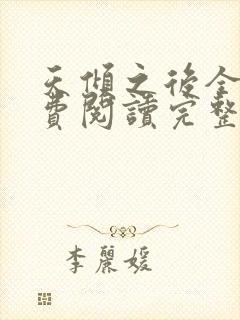 天傾之後全
費閱讀完整
李麗媛